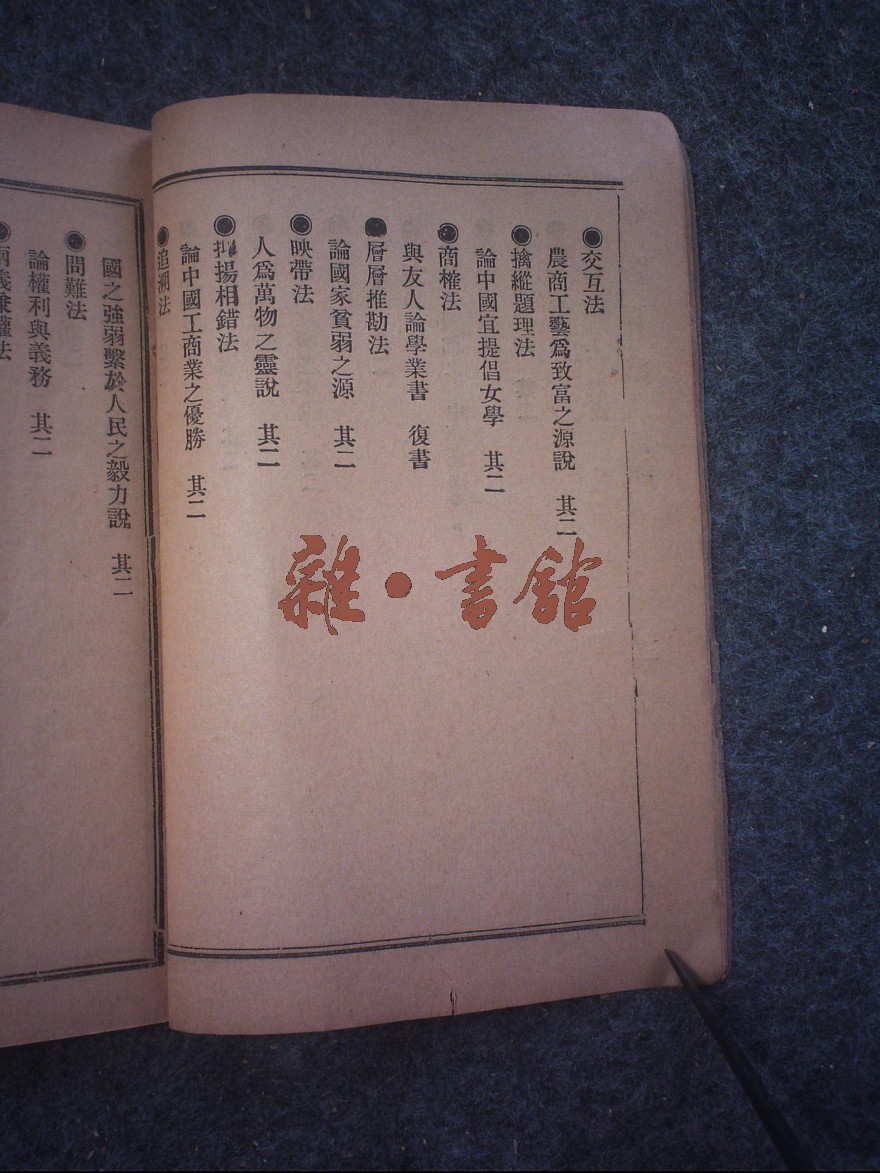 ◉交互法
農商工藝爲致富之源說 其二
◉擒縱題理法
論中國宜提倡女學 其二
◉商榷法
與友人論學業書 復書
◉層層推勘法
論國家貧弱之源 其二
◉映帶法
人爲萬物之靈說 其二
◉抑揚相錯法
論中國工商業之優勝 其二
◉追溯法
國之強弱繫於人民之毅力說 其二
◉問難法
論權利與義務 其二
◉兩義兼權法
雜·書館